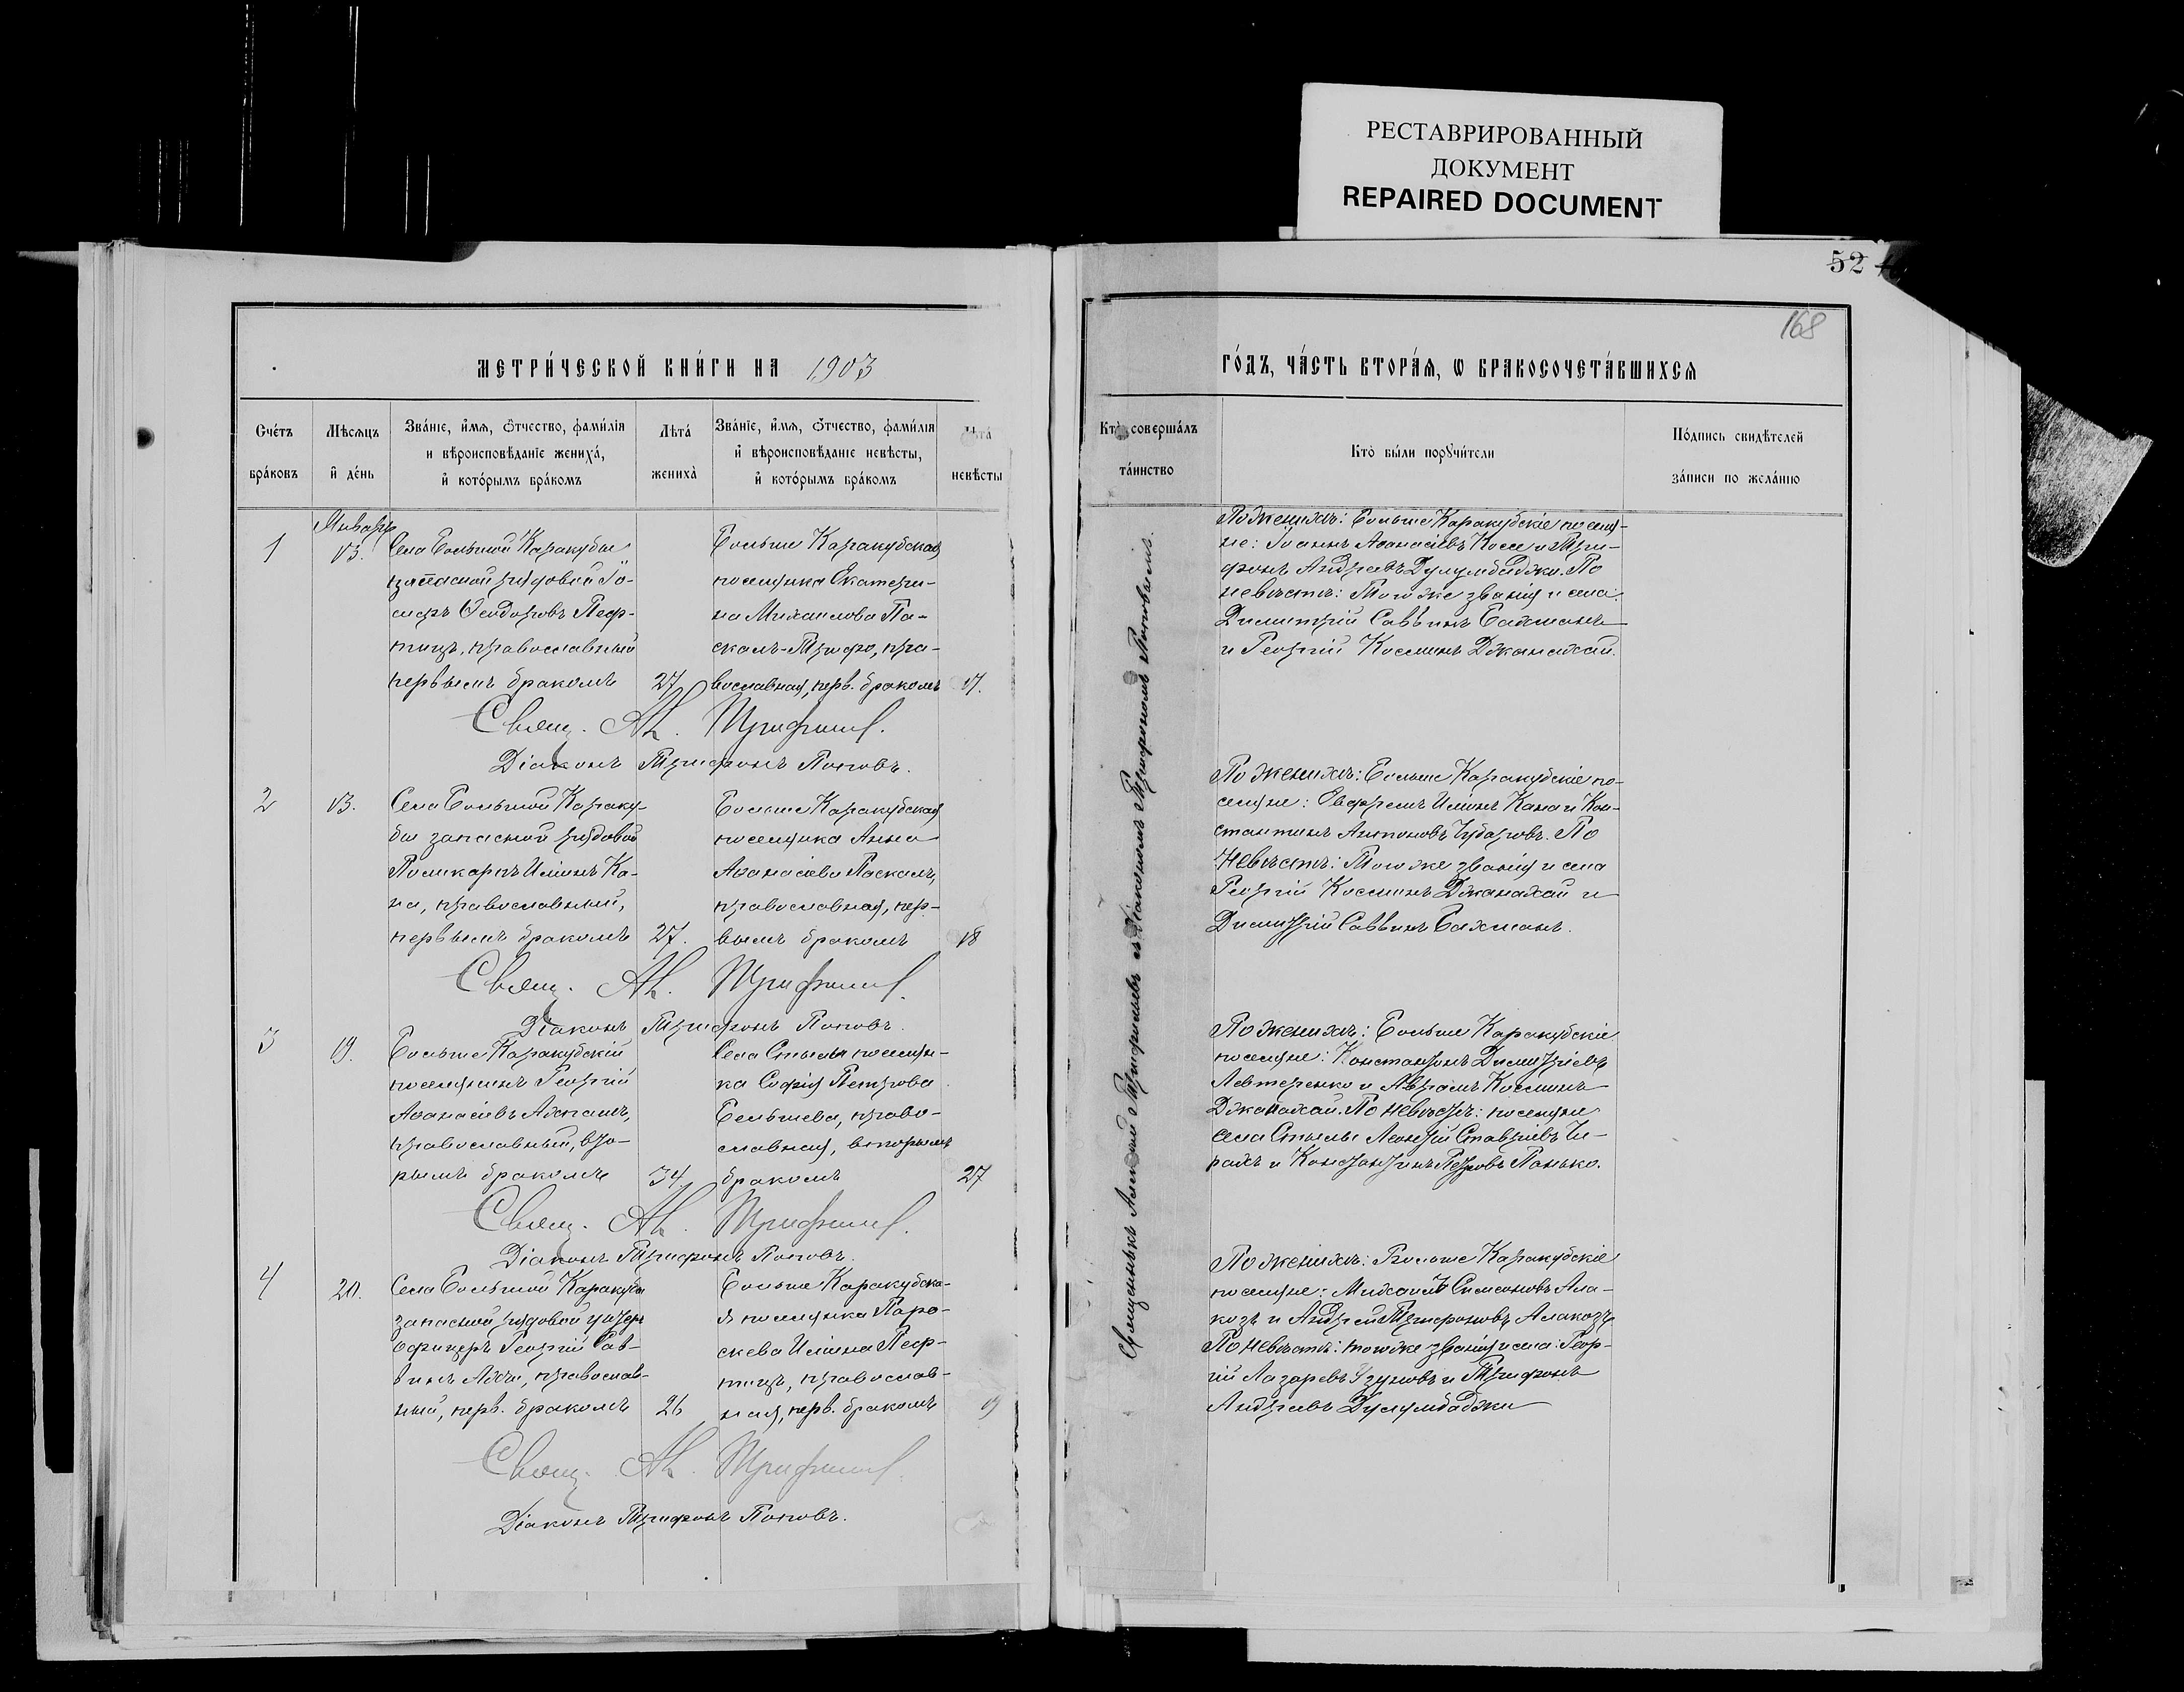 РЕСТАВРИРОВАННЫЙ
ДОКУМЕНТ
REPAIRED DOCUMENT
52
168
МЕТРИ́ЧЕСКОЙ КНИ́ГИ НА 1903
ГО́ДЪ, ЧА́СТЬ ВТОРА́Я, Ѡ БРАКОСОЧЕТА́ВШИХСЯ
Счётъ бра́ковъ
Мѣсяцъ и де́нь
Зва́нїе, и́мя, о́тчество, фами́лїя
и вѣроисповѣ́данїе жениха́,
и кото́рымъ бра́комъ
Лѣта́ жениха̀
Зва́нїе, и́мя, о́тчество, фами́лїя
и вѣроисповѣ́данїе невѣ́сты,
и кото́рымъ бра́комъ
Лѣта́ невѣ́сты
Кто̀ соверша́лъ та́инство
Кто̀ бы́ли порꙋчи́тели
По́дпись свидѣ́телей
за́писи по жела́нїю
Январь
1
13.
Села Большой Каракубы
запасной рядовой Іо-
сифъ Ѳеодоровъ Пеф-
тицъ, православный
первымъ бракомъ
27
Больше Каракубская
поселянка Екатери-
на Михаилова Па-
скалъ-Трифо, пра-
вославная, перв. бракомъ
17.
Свящ. Ал. Трифильев
Діаконъ Трифонъ Поповъ.
2
13.
Села Большой Караку-
бы запасной рядовой
Поликарпъ Иліинъ Ка-
на, православный,
первымъ бракомъ
27.
Больше Каракубская
поселянка Анна
Аѳанасіева Паскалъ,
православная, пер-
вымъ бракомъ
18
Свящ. Ал. Трифильев
Діаконъ Трифонъ Поповъ.
3
19.
Больше Каракубскій
поселянинъ Георгій
Аѳанасіевъ Ахпашъ,
православный, вто-
рымъ бракомъ
34
Села Стыла поселян-
ка Софія Петрова
Бельшева, право-
славная, вторымъ
бракомъ
27
Свящ. Ал. Трифильев
Діаконъ Трифонъ Поповъ.
4
20.
Села Большой Каракубы
запасной рядовой унтеръ
офицеръ Георгій Сав-
винъ Ахчи, православ-
ный, перв. бракомъ
26
Больше Каракубска-
я поселянка Пара-
скева Иліина Пеф-
тицъ, православ-
ная, перв. бракомъ
19
Свящ. Ал. Трифильев
Діаконъ Трифонъ Поповъ.
Священникъ Алексій Трифильевъ съ Діакономъ Трифономъ Поповымъ.
По женихѣ: Больше Каракубскіе поселя-
не: Іоаннъ Аѳанасіевъ Коссе и Три-
фонъ Андреевъ Дулумбаджи. По
невѣстѣ: Того же званія и села
Димитрій Саввинъ Бахманъ
и Георгій Косминъ Джанахай.
По женихѣ: Больше Каракубскіе по-
селяне: Ефремъ Иліинъ Кана и Кон-
стантинъ Антоновъ Чубаровъ. По
невѣстѣ: Того же званія и села
Георгій Косминъ Джанахай и
Димитрій Саввинъ Бахманъ.
По женихѣ: Больше Каракубскіе
поселяне: Константинъ Димитріевъ
Левтеренко и Авраамъ Косминъ
Джанахай. По невѣстѣ: поселяне
села Стылы Леонтій Ставріевъ Чи-
рахъ и Константинъ Петровъ Панько.
По женихѣ: Больше Каракубскіе
поселяне: Михаилъ Симеоновъ Ала-
козъ и Андрей Трифоновъ Алакозъ
По невѣстѣ: того же званія и села: Геор-
гій Лазаревъ Узуновъ и Трифонъ
Андреевъ Дулумбаджи